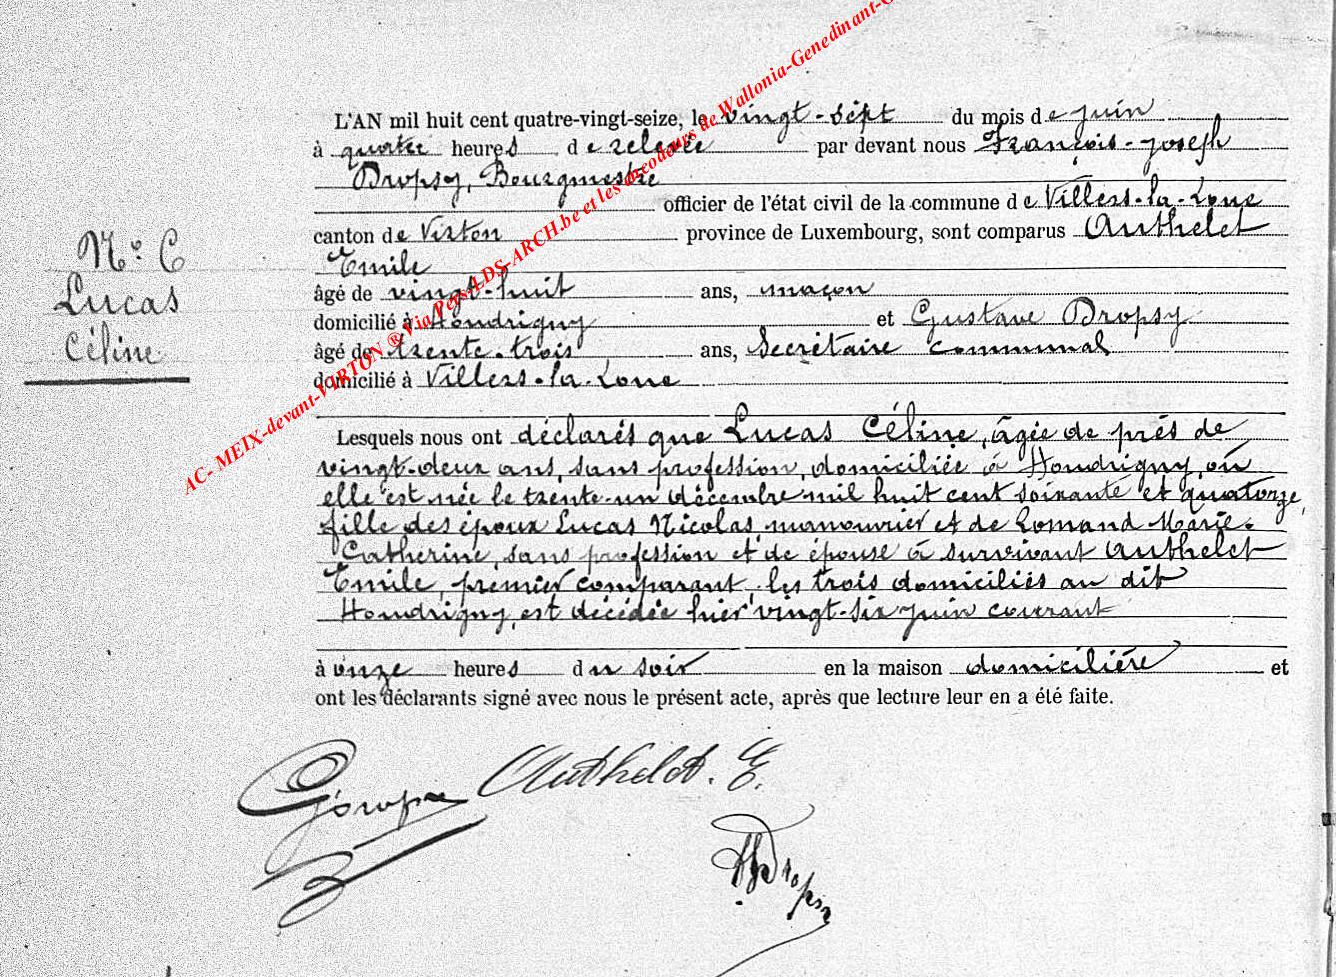 AC- MEIX-devant-VIRTON ® Via Pers-LDS-ARCH.be et les encodeurs de Wallonia-Genedinant-G
L'AN mil huit cent quatre-vingt-seize, le vingt-sept du mois de juin
à quatre heures de relevée par devant nous François-Joseph
Dropsy, Bourgmestre
officier de l'état civil de la commune de Villers-la-Loue
canton de Virton province de Luxembourg, sont comparus Authelet
Emile
âgé de vingt-huit ans, maçon
domicilié à Houdrigny et Gustave Dropsy
âgé de trente-trois ans, Secrétaire communal
domicilié à Villers-la-Loue
N° 6
Lucas
Céline
Lesquels nous ont déclarés que Lucas Céline, âgée de prés de
vingt-deux ans, sans profession, domiciliée à Houdrigny, où
elle est née le trente-un décembre mil huit cent soixante et quatorze,
fille des époux Lucas Nicolas, manouvrier et de Lomand Marie-
Catherine, sans profession et de épouse à survivant Authelet
Emile, premier comparant, les trois domiciliés au dit
Houdrigny, est décédée hier vingt-six juin courant
à onze heures du soir en la maison domicilière et
ont les déclarants signé avec nous le présent acte, après que lecture leur en a été faite.
Authelet. E.
Dropsy